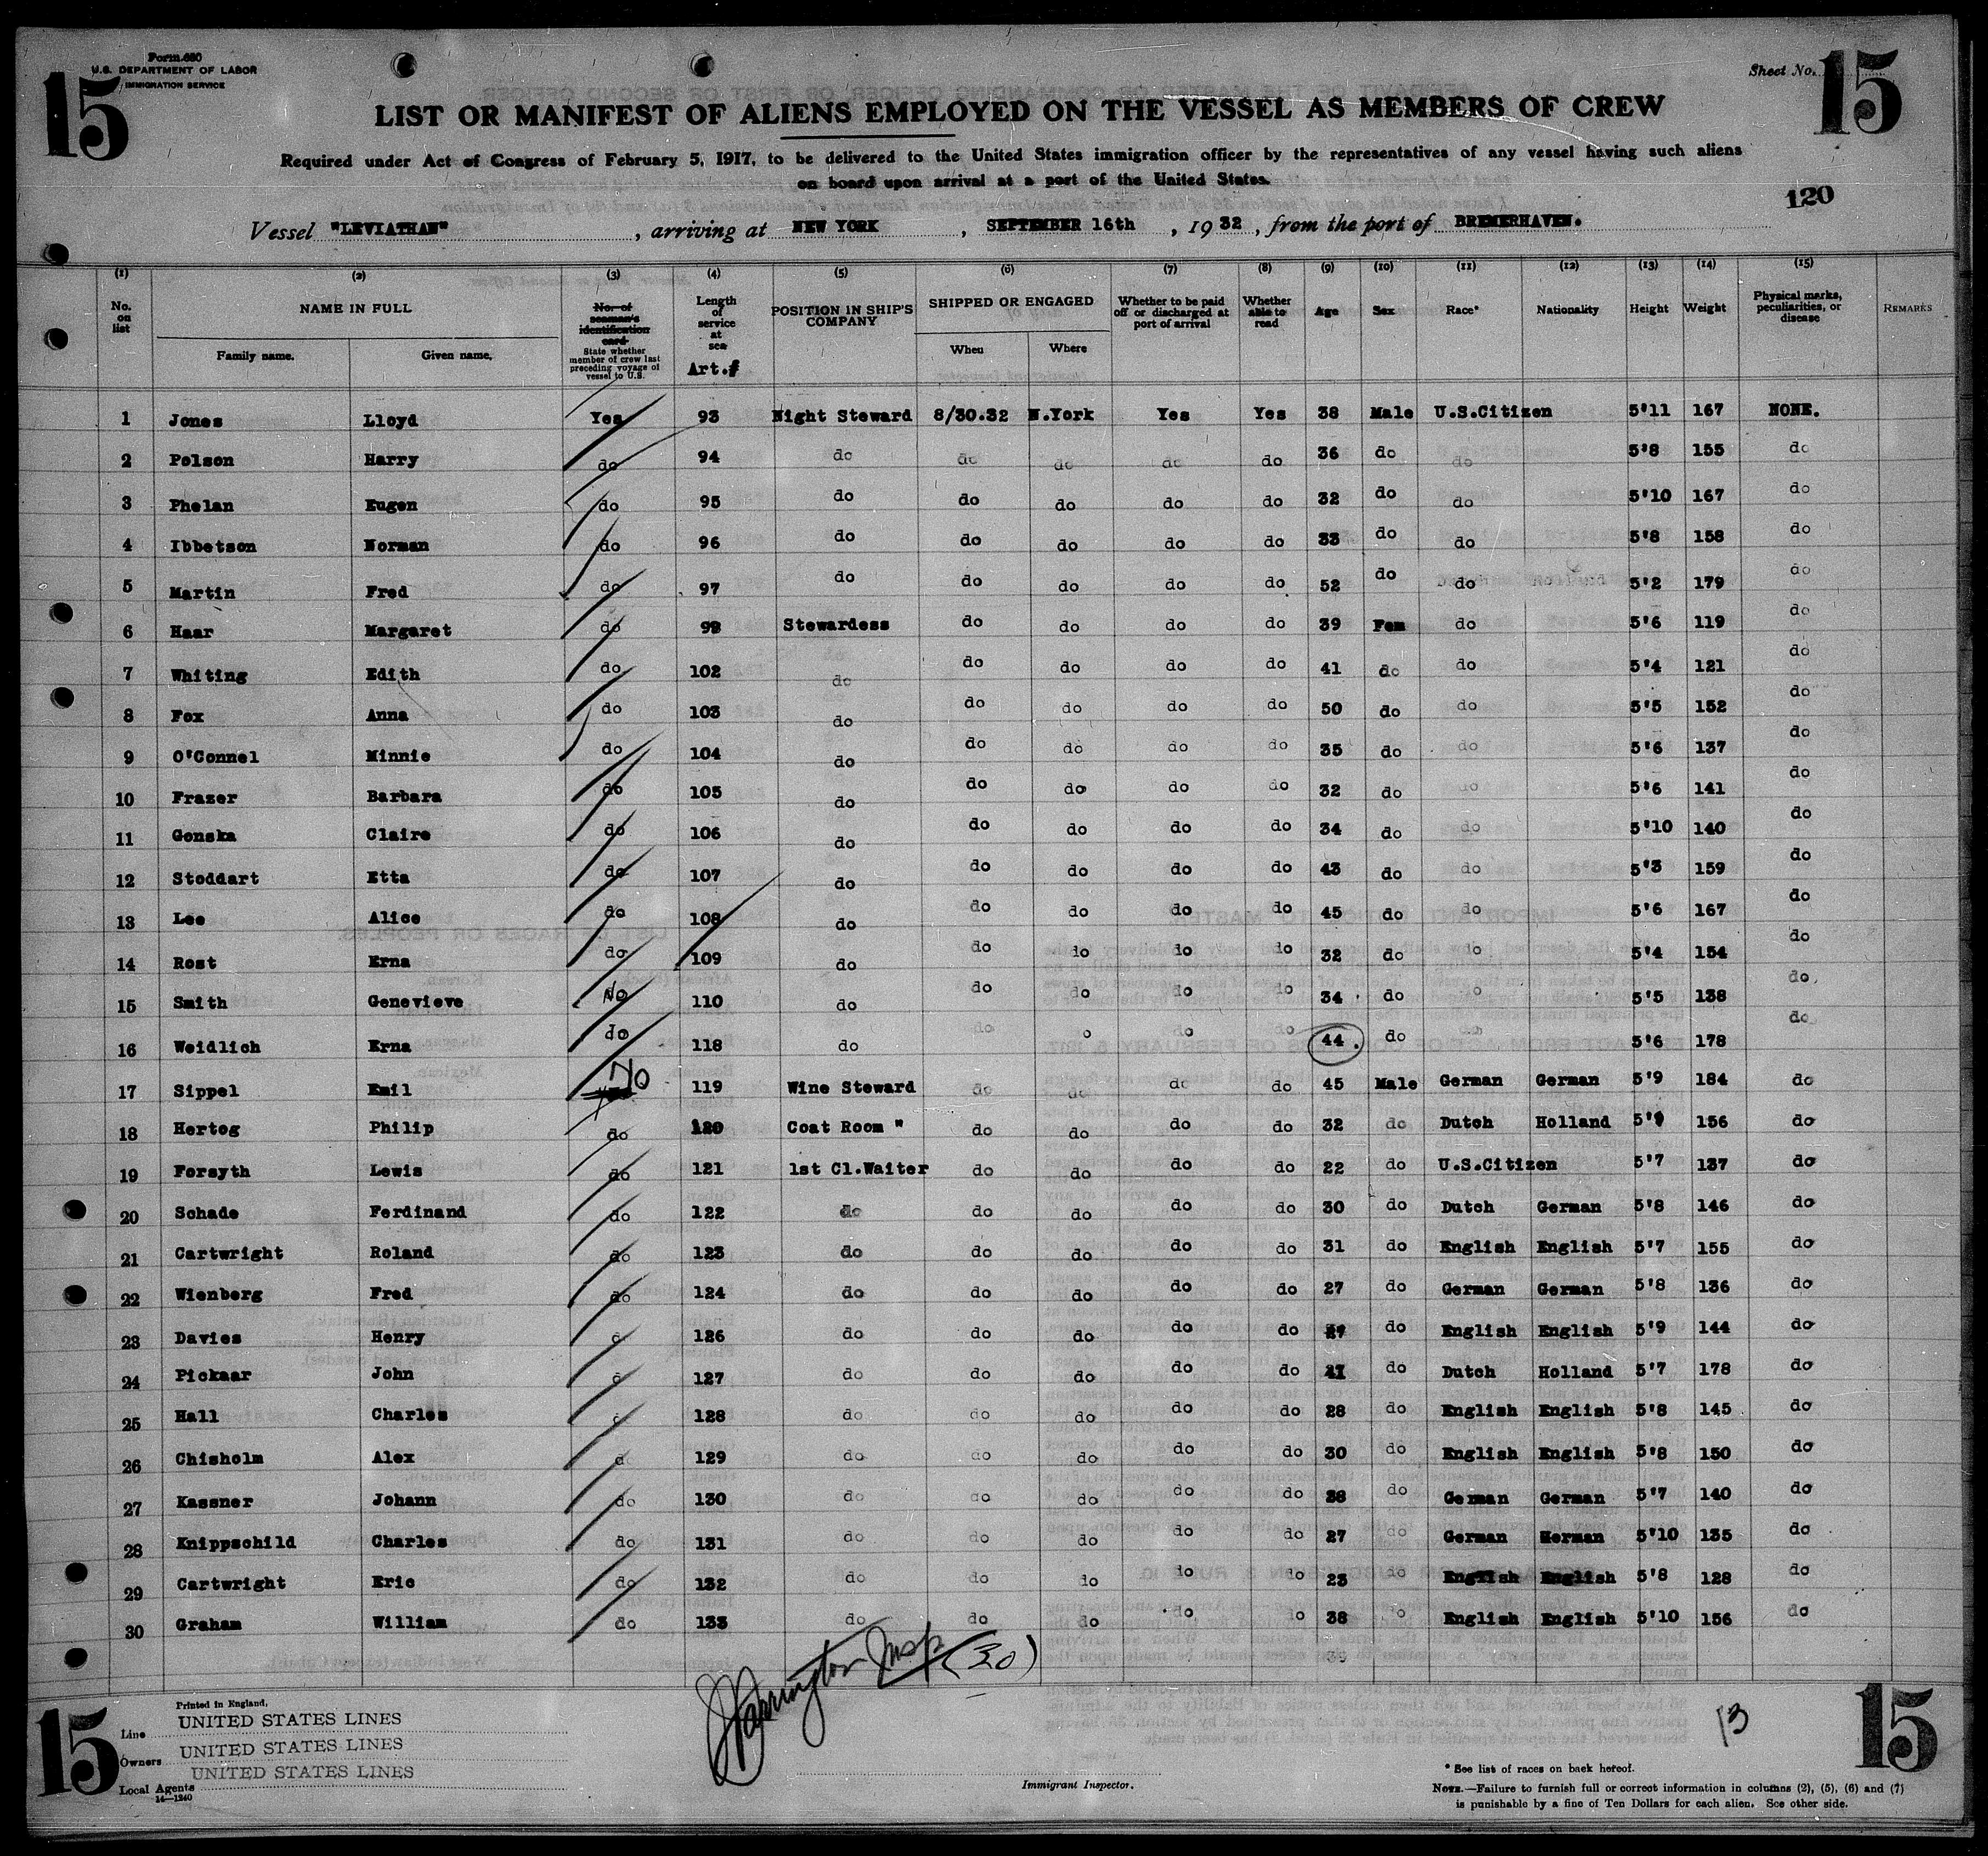 Form 680
U.S. DEPARTMENT OF LABOR
IMMIGRATION SERVICE
15
Sheet No. 15
LIST OR MANIFEST OF ALIENS EMPLOYED ON THE VESSEL AS MEMBERS OF CREW
Required under Act of Congress of February 5, 1917, to be delivered to the United States immigration officer by the representatives of any vessel having such aliens
on board upon arrival at a port of the United States.
120
Vessel "LEVIATHAN", arriving at NEW YORK, SEPTEMBER 16th, 1932, from the port of BREMERHAVEN.
(1) (2) (3) (4) (5) (6) (7) (8) (9) (10) (11) (12) (13) (14) (15)
No. on list NAME IN FULL Family name. Given name. No. of seaman's identification card State whether member of crew last preceding voyage of vessel to U.S. Length of service at sea Art.# POSITION IN SHIP'S COMPANY SHIPPED OR ENGAGED When Where Whether to be paid off or discharged at port of arrival Whether able to read Age Sex Race* Nationality Height Weight Physical marks, peculiarities, or disease REMARKS
1 Jones Lloyd Yes 93 Night Steward 8/30.32 N.York Yes Yes 38 Male U.S.Citizen 5'11 167 NONE.
2 Polson Harry do 94 do do do do do 36 do do 5'8 155 do
3 Phelan Eugen do 95 do do do do do 32 do do 5'10 167 do
4 Ibbetson Norman do 96 do do do do do 33 do do 5'8 158 do
5 Martin Fred do 97 do do do do do 52 do do 5'2 179 do
6 Haar Margaret do 99 Stewardess do do do do 39 Fem do 5'6 119 do
7 Whiting Edith do 102 do do do do do 41 do do 5'4 121 do
8 Fox Anna do 103 do do do do do 50 do do 5'5 152 do
9 O'Connel Minnie do 104 do do do do do 35 do do 5'6 137 do
10 Frazer Barbara do 105 do do do do do 32 do do 5'6 141 do
11 Gonska Claire do 106 do do do do do 34 do do 5'10 140 do
12 Stoddart Etta do 107 do do do do do 43 do do 5'3 159 do
13 Lee Alice do 108 do do do do do 45 do do 5'6 167 do
14 Rost Erna do 109 do do do do do 32 do do 5'4 154 do
15 Smith Genevieve No 110 do do do do do 34 do do 5'5 138 do
16 Weidlich Erna do 118 do do do do do 44 do do 5'6 178 do
17 Sippel Emil No 119 Wine Steward do do do do 45 Male German German 5'9 184 do
18 Hertog Philip do 120 Coat Room " do do do do 32 do Dutch Holland 5'9 156 do
19 Forsyth Lewis do 121 1st Cl.Waiter do do do do 22 do U.S.Citizen 5'7 137 do
20 Schade Ferdinand do 122 do do do do do 30 do Dutch German 5'8 146 do
21 Cartwright Roland do 123 do do do do do 31 do English English 5'7 155 do
22 Wienberg Fred do 124 do do do do do 27 do German German 5'8 136 do
23 Davies Henry do 126 do do do do do do English English 5'9 144 do
24 Pickaar John do 127 do do do do do do Dutch Holland 5'7 178 do
25 Hall Charles do 128 do do do do do 28 do English English 5'8 145 do
26 Chisholm Alex do 129 do do do do do 30 do English English 5'8 150 do
27 Kassner Johann do 130 do do do do do 28 do German German 5'7 140 do
28 Knippschild Charles do 131 do do do do do 27 do German Herman 5'10 135 do
29 Cartwright Eric do 132 do do do do do 23 do English English 5'8 128 do
30 Graham William do 133 do do do do do 38 do English English 5'10 156 do
Harrington Insp (30)
13
15
15
Printed in England.
Line UNITED STATES LINES
Owners UNITED STATES LINES
Local Agents UNITED STATES LINES
14—1240
Immigrant Inspector.
* See list of races on back hereof.
NOTE.—Failure to furnish full or correct information in columns (2), (5), (6) and (7)
is punishable by a fine of Ten Dollars for each alien. See other side.